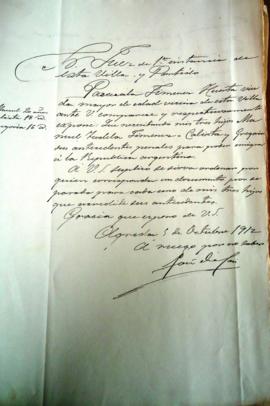 Sr. Juez de 1ª instancia de
esta Villa y Partido
Pascuala Jimenez Huerta viu
da mayor de edad vecina de esta Villa
ante V comparece y respetuosamente
expone: Que necesitando mis tres hijos Ma
nuel Tudela Jimenez Calixta y Gregorio
sus antecedentes penales para poder emigrar
á la República argentina
A V.S. suplica se sirva ordenar por
quien corresponda un documento por se
parado para cada uno de mis tres hijos
que acredite sus antecedentes
Gracia que espero de V.S.
Agreda 5 de Octubre 1912
A ruego por no saber
Manuel 20 años